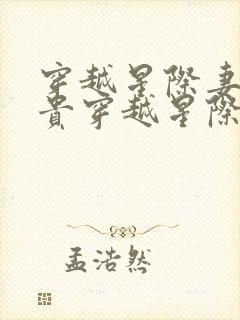 穿越星際妻
貴穿越星際
孟浩然